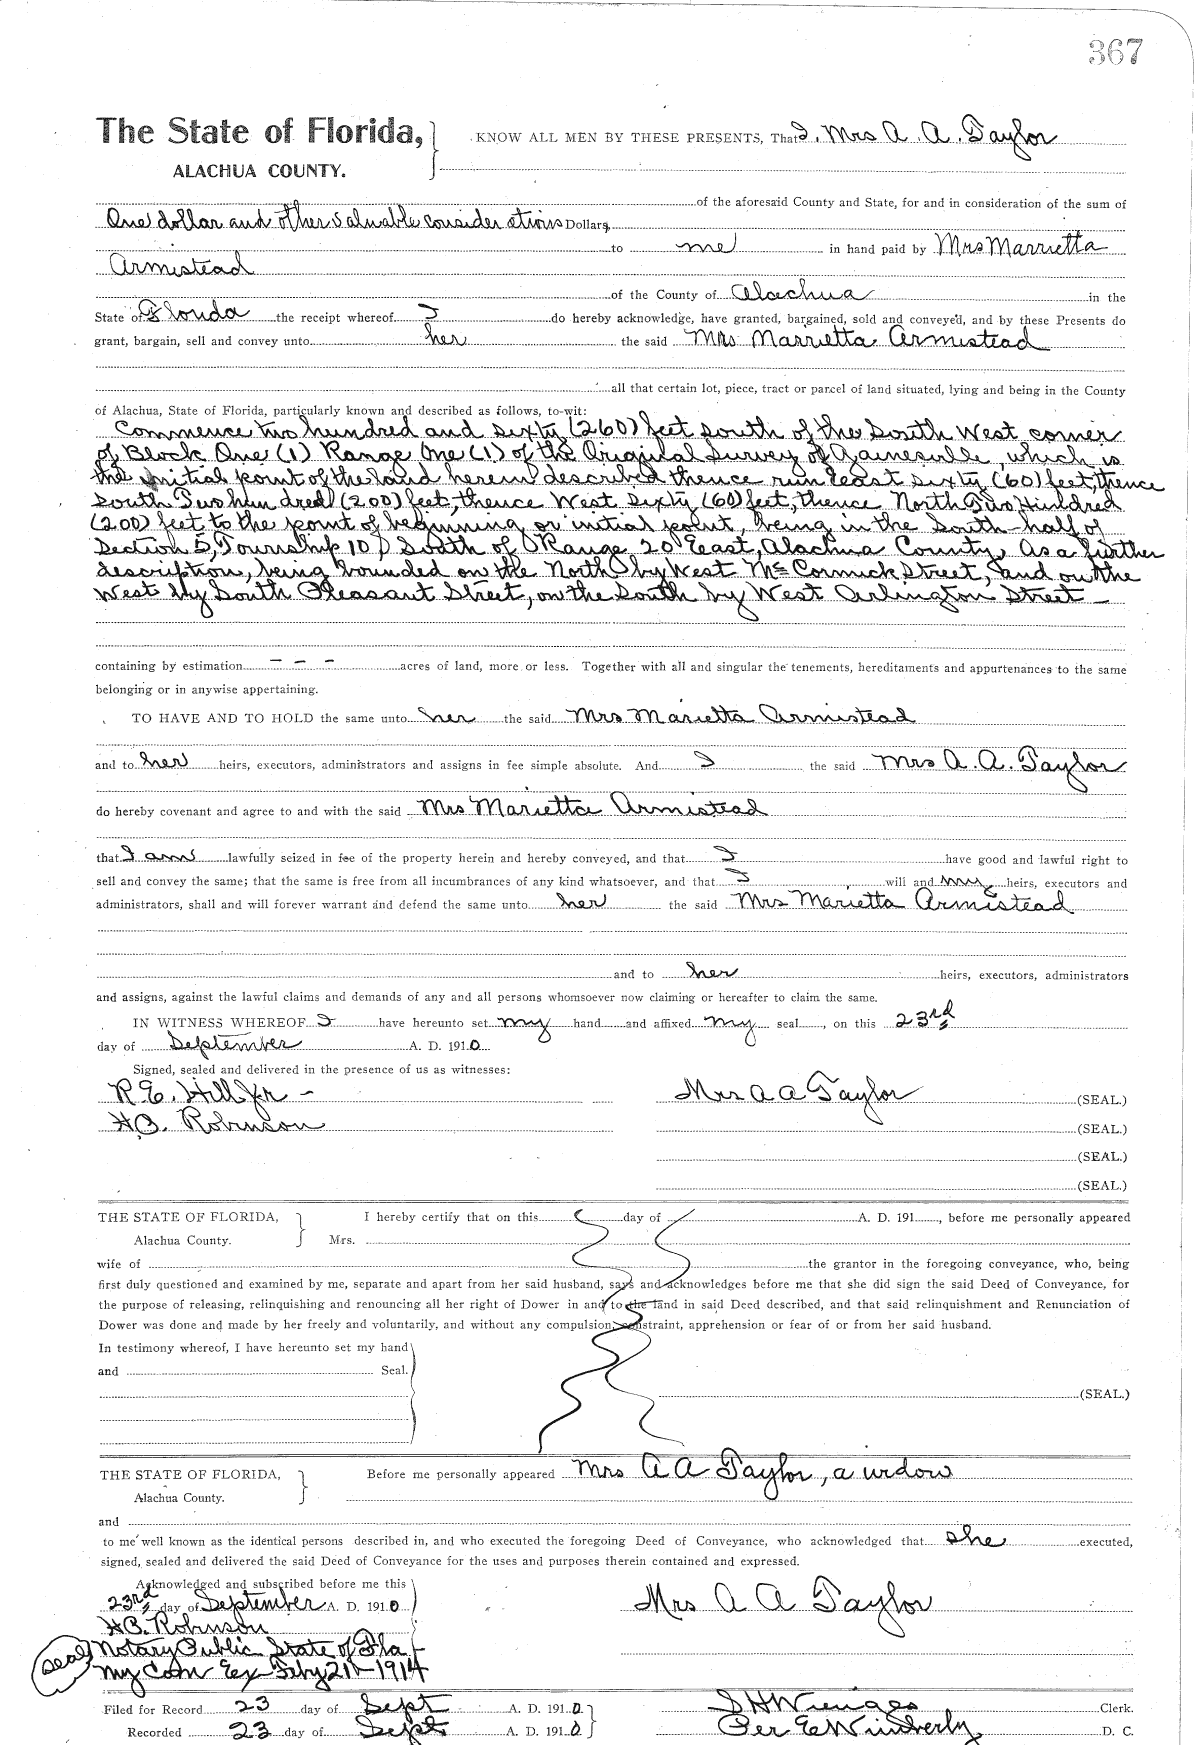 367
The State of Florida,
ALACHUA COUNTY.
KNOW ALL MEN BY THESE PRESENTS, That I. Mrs A. A. Taylor
of the aforesaid County and State, for and in consideration of the sum of
One dollar and other valuable considerations Dollars,
to me in hand paid by Mrs Marrietta
Armistead
of the County of Alachua in the
State of Florida the receipt whereof I do hereby acknowledge, have granted, bargained, sold and conveyed, and by these Presents do
grant, bargain, sell and convey unto her the said Mrs Marrietta Armistead
all that certain lot, piece, tract or parcel of land situated, lying and being in the County
of Alachua, State of Florida, particularly known and described as follows, to-wit:
Commence two hundred and sixty (260) feet south of the South West corner
of Block One (1) Range One (1) of the Original Survey of Gainesville, which is
the initial point of the land herein described thence run East sixty (60) feet, thence
South Two hundred (200) feet, thence West Sixty (60) feet, thence North Two Hundred
(200) feet to the point of beginning or initial point, being in the South half of
Section 5, Township 10 South of Range 20 East, Alachua County, As a further
description, being bounded on the North by West McCormick Street, and on the
West by South Pleasant Street, on the South by West Arlington Street
containing by estimation - - - acres of land, more or less. Together with all and singular the tenements, hereditaments and appurtenances to the same
belonging or in anywise appertaining.
TO HAVE AND TO HOLD the same unto her the said Mrs Marietta Armistead
and to her heirs, executors, administrators and assigns in fee simple absolute. And I the said Mrs A. A. Taylor
do hereby covenant and agree to and with the said Mrs Marietta Armistead
that I am lawfully seized in fee of the property herein and hereby conveyed, and that I have good and lawful right to
sell and convey the same; that the same is free from all incumbrances of any kind whatsoever, and that I will and my heirs, executors and
administrators, shall and will forever warrant and defend the same unto her the said Mrs Marietta Armistead
and to her heirs, executors, administrators
and assigns, against the lawful claims and demands of any and all persons whomsoever now claiming or hereafter to claim the same.
IN WITNESS WHEREOF I have hereunto set my hand and affixed my seal, on this 23rd
day of September A. D. 1910
Signed, sealed and delivered in the presence of us as witnesses:
R.E. Hill Jr - Mrs A A Taylor (SEAL.)
H.B. Robinson (SEAL.)
(SEAL.)
(SEAL.)
THE STATE OF FLORIDA, I hereby certify that on this day of A. D. 191 , before me personally appeared
Alachua County. Mrs.
wife of the grantor in the foregoing conveyance, who, being
first duly questioned and examined by me, separate and apart from her said husband, says and acknowledges before me that she did sign the said Deed of Conveyance, for
the purpose of releasing, relinquishing and renouncing all her right of Dower in and to the land in said Deed described, and that said relinquishment and Renunciation of
Dower was done and made by her freely and voluntarily, and without any compulsion, constraint, apprehension or fear of or from her said husband.
In testimony whereof, I have hereunto set my hand
and Seal.
(SEAL.)
THE STATE OF FLORIDA, Before me personally appeared Mrs A A Taylor, a widow
Alachua County.
and
to me well known as the identical persons described in, and who executed the foregoing Deed of Conveyance, who acknowledged that she executed,
signed, sealed and delivered the said Deed of Conveyance for the uses and purposes therein contained and expressed.
Acknowledged and subscribed before me this
23rd day of September A. D. 1910 Mrs A A Taylor
H.B. Robinson
Notary Public State of Fla
seal My Com Ex Feby 21 1914
Filed for Record 23 day of Sept A. D. 1910 S H Wienges Clerk.
Recorded 23 day of Sept A. D. 1910 Per E Wimberly D. C.